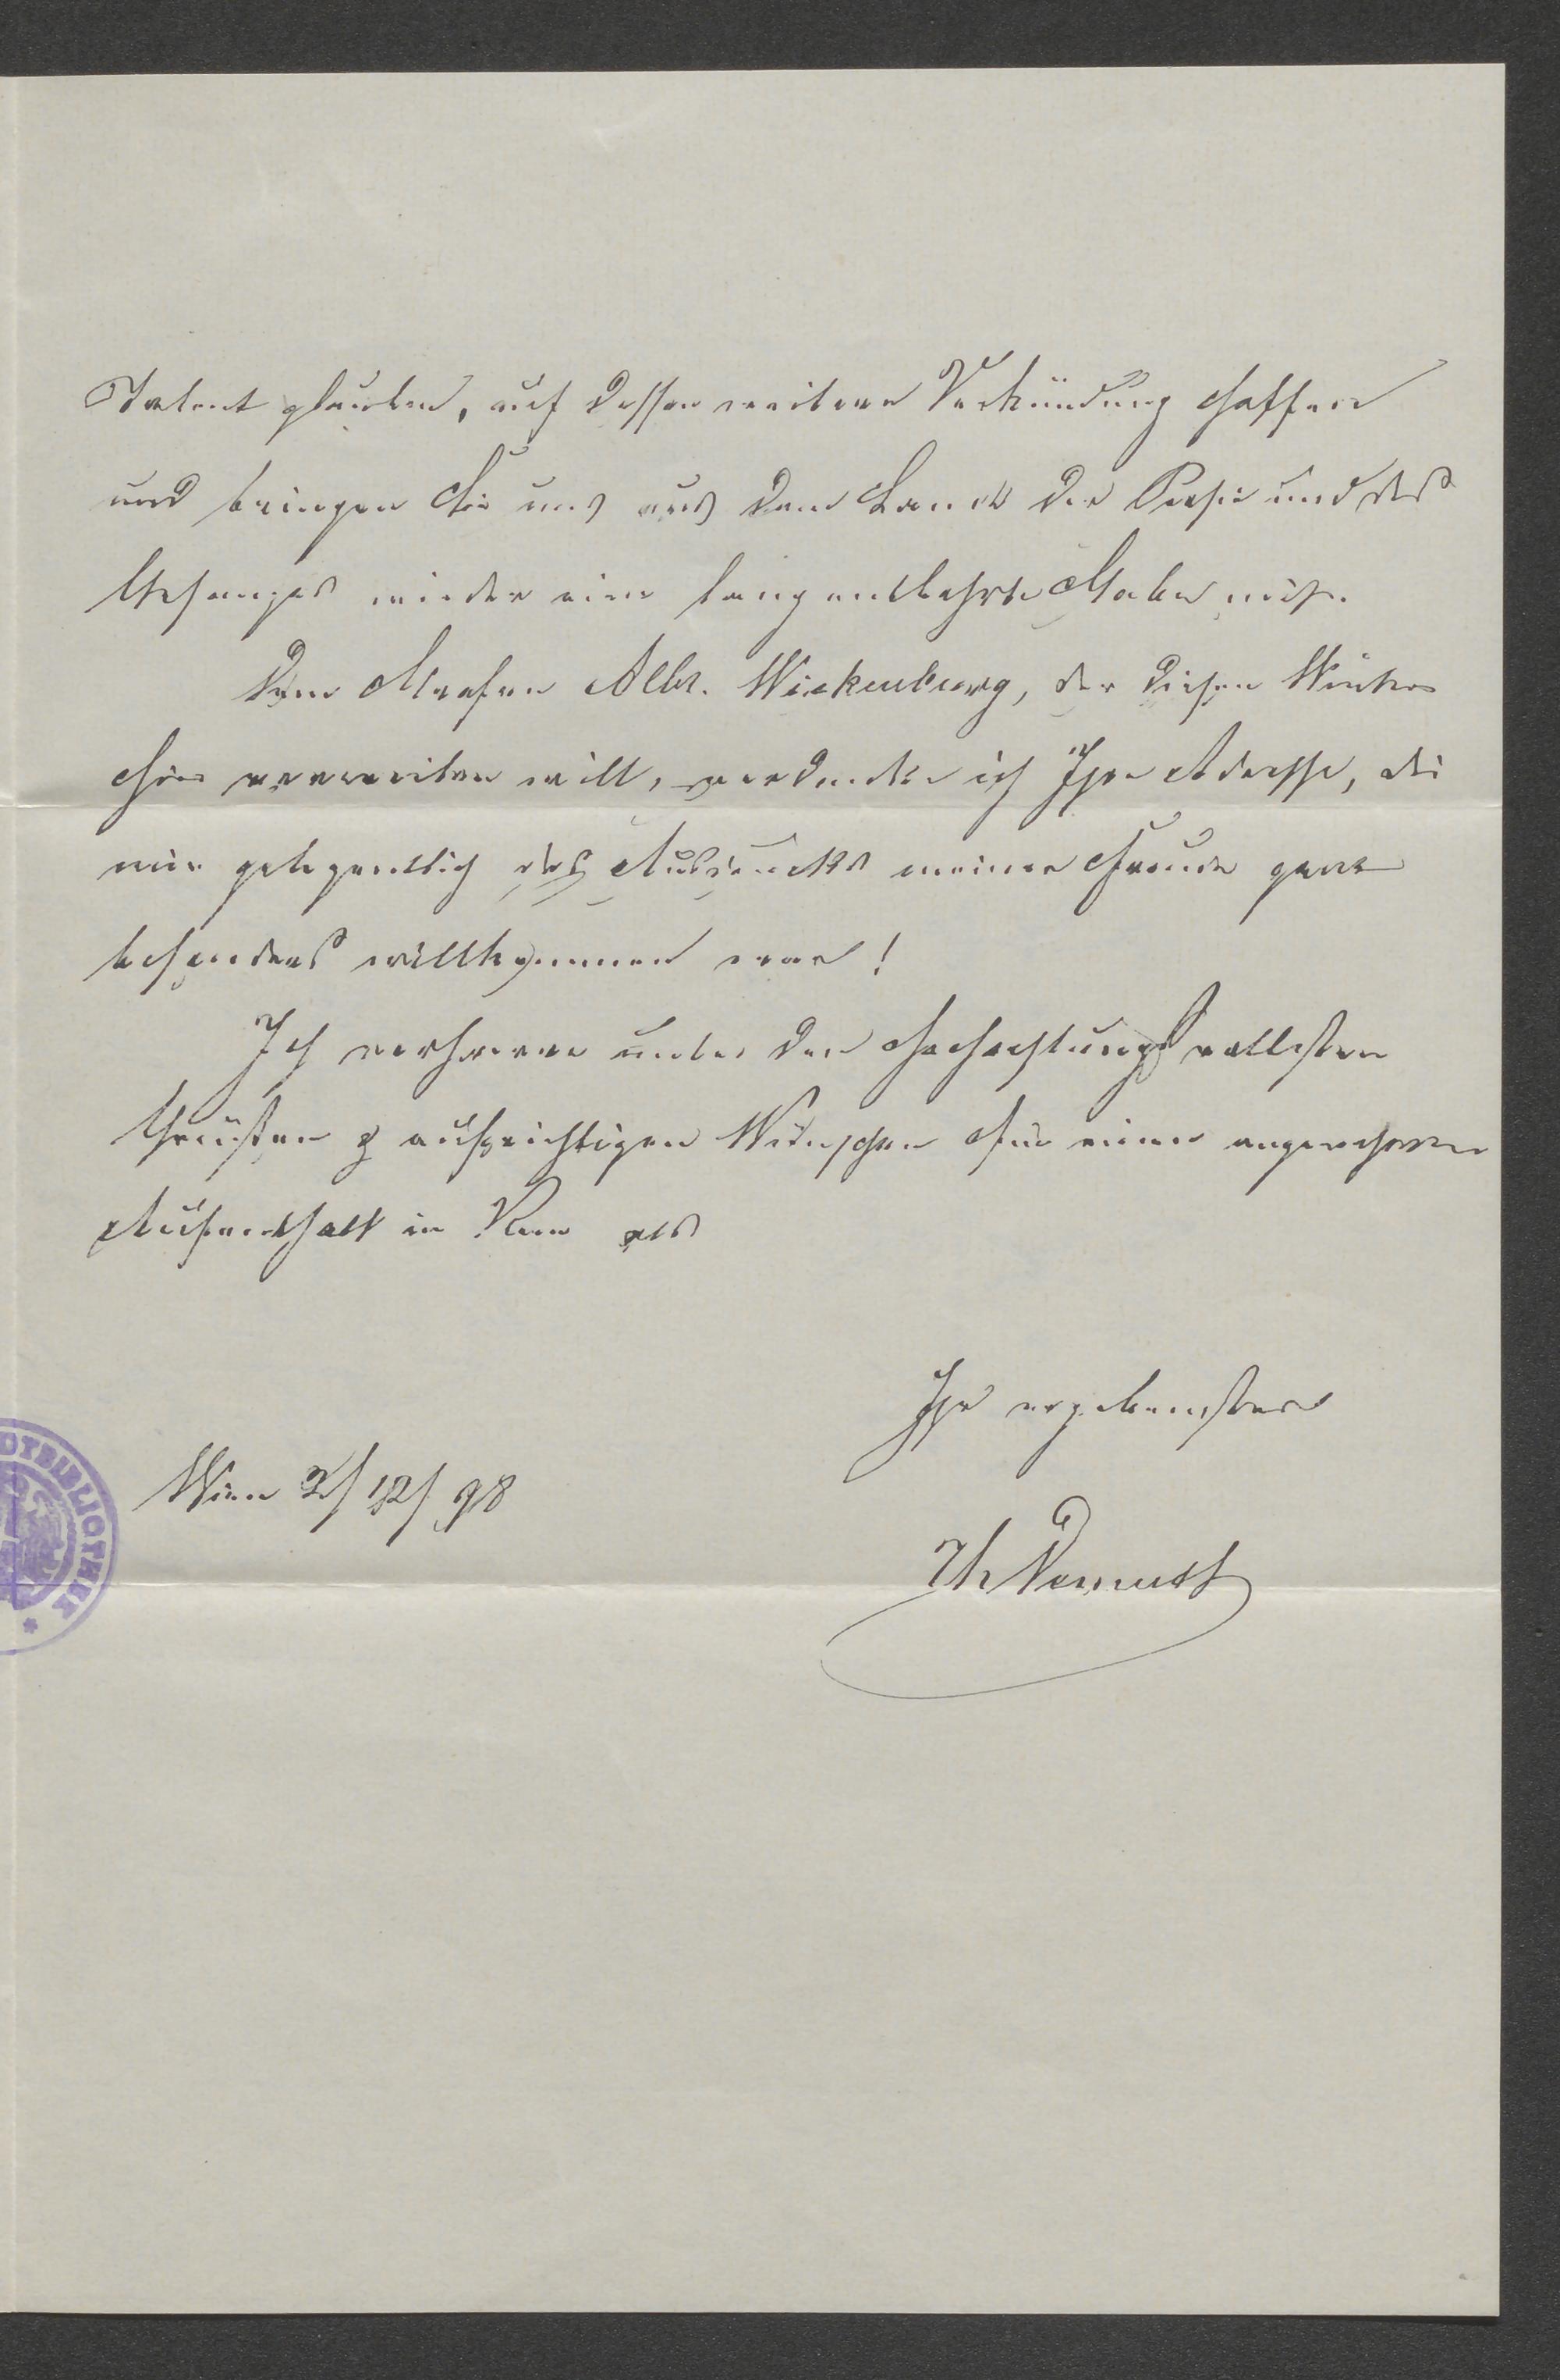 Talent glauben, auf dessen weitere Verkündung hoffen
und bringen Sie uns aus dem Lande der Poesie und des
Gesanges wieder eine langentbehrte Gabe mit.
Dem Grafen Albr. Wickenburg, der diesen Winter
hier verweilen will, verdanke ich Ihre Adresse, die
mir gelegentlich des Ausdrucks meiner Freude ganz
besonders willkommen war!
Ich verharre unter den hochachtungsvollsten
Grüßen & aufrichtigen Wünschen für einen angenehmen
Aufenthalt in Rom als
Ihr ergebenster
Wien 2/12/98
Th
OTBIBLIOTHEK *